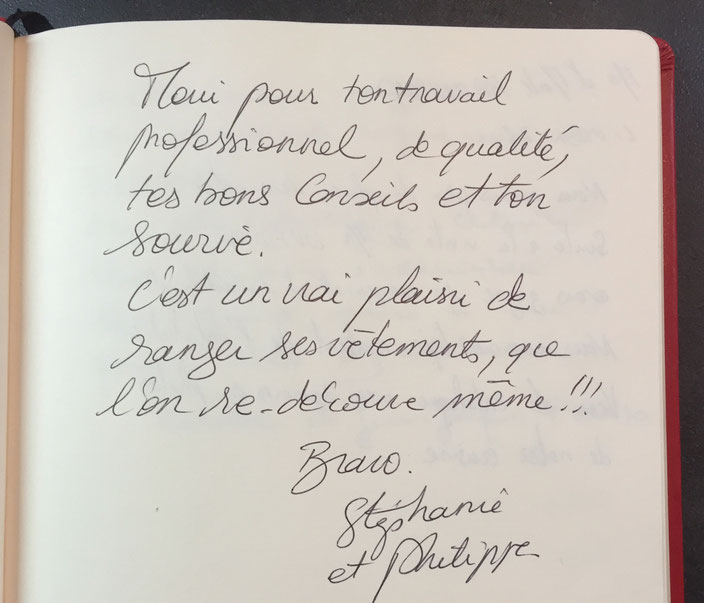 Merci pour ton travail
professionnel, de qualité,
tes bons Conseils et ton
sourire.
C'est un vrai plaisir de
ranger ses vêtements, que
l'on re-découvre même !!!
Bravo.
Stéphanie
et Philippe